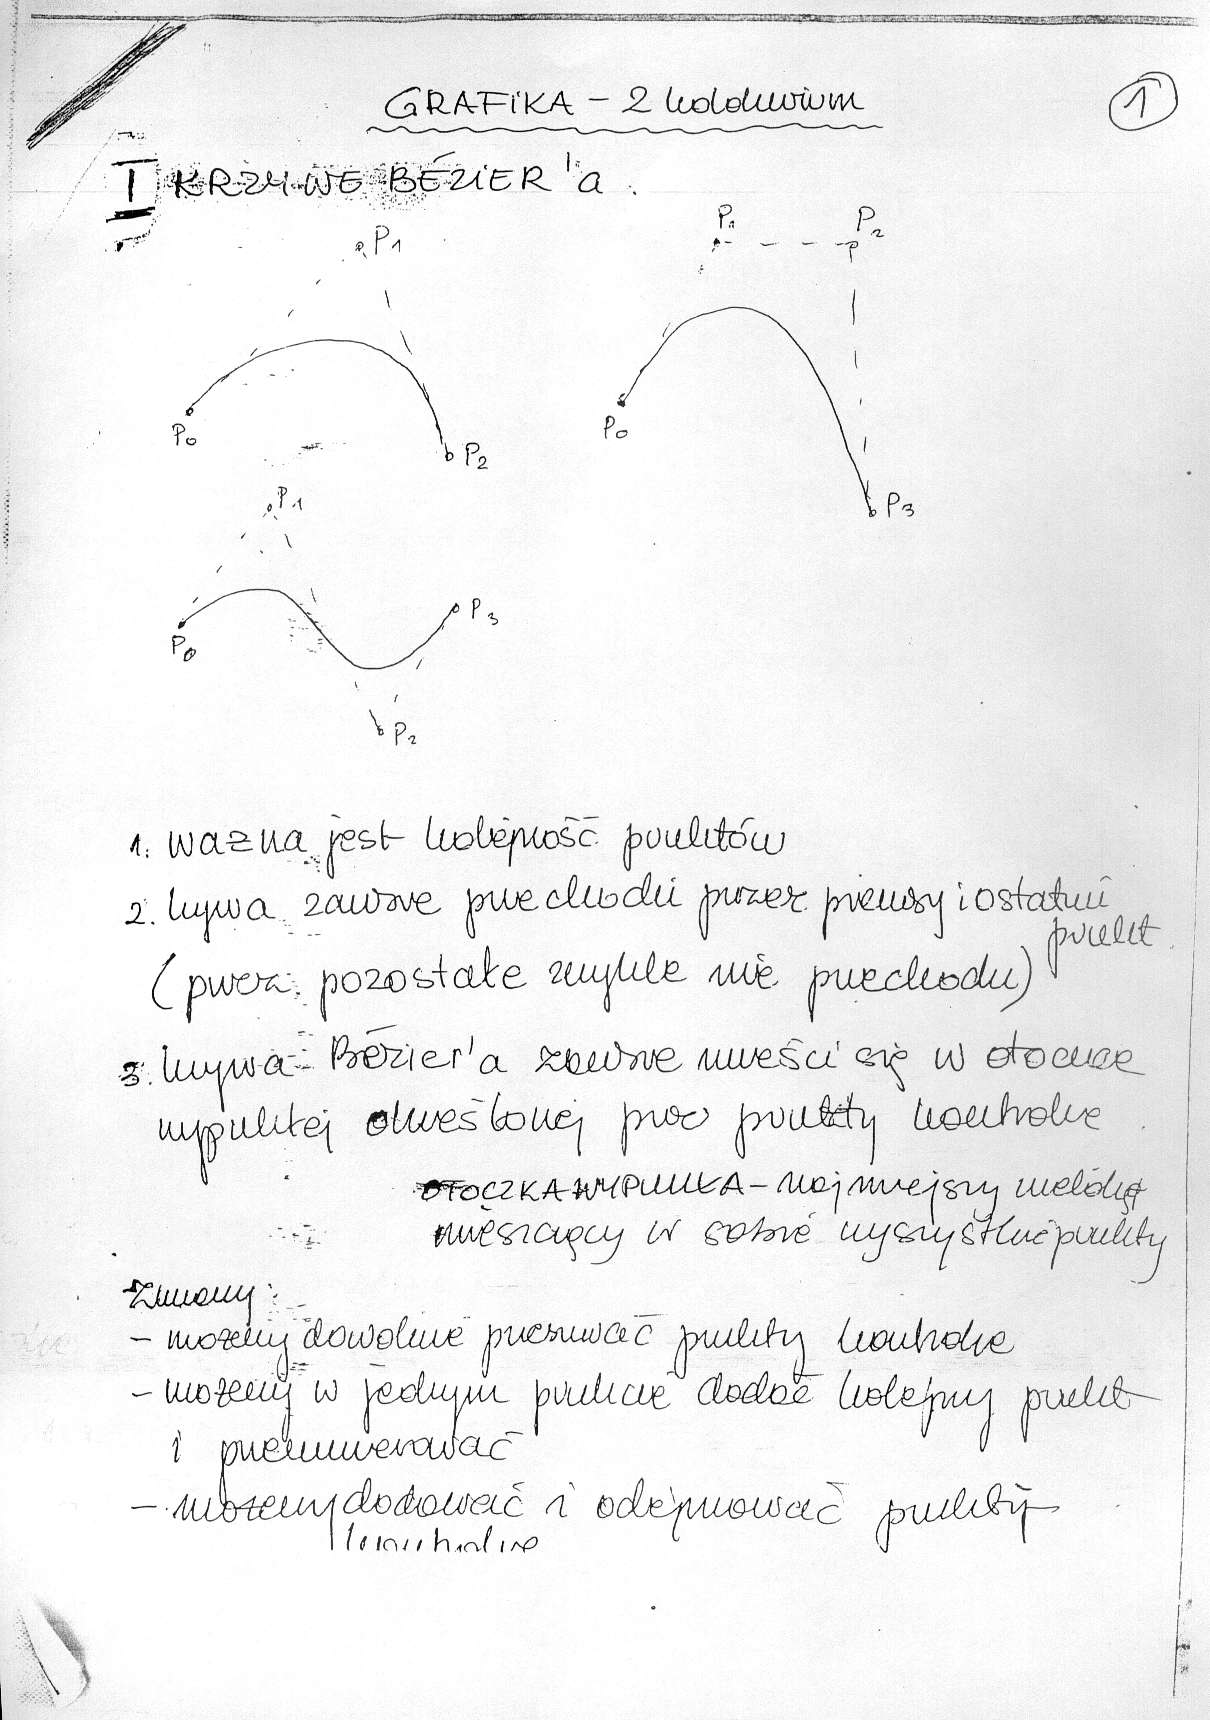 GRAFIKA - 2 kolokwium
1
I KRZYWE BÉZIER'a.
P1
P1 P2
P0
P2
P0
P3
P1
P0
P3
P2
1. ważna jest kolejność punktów
2. krzywa zawsze przechodzi przez pierwszy i ostatni
punkt
(przez pozostałe zwykle nie przechodzi)
3. krzywa Bézier'a zawsze mieści się w otoczce
wypukłej określonej przez punkty kontrolne
OTOCZKA WYPUKŁA - najmniejszy wielokąt
mieszczący w sobie wszystkie punkty
Zmiany:
- możemy dowolnie przesuwać punkty kontrolne
- możemy w jednym punkcie dodać kolejny punkt
i przenumerować
- możemy dodawać i odejmować punkty
kontrolne